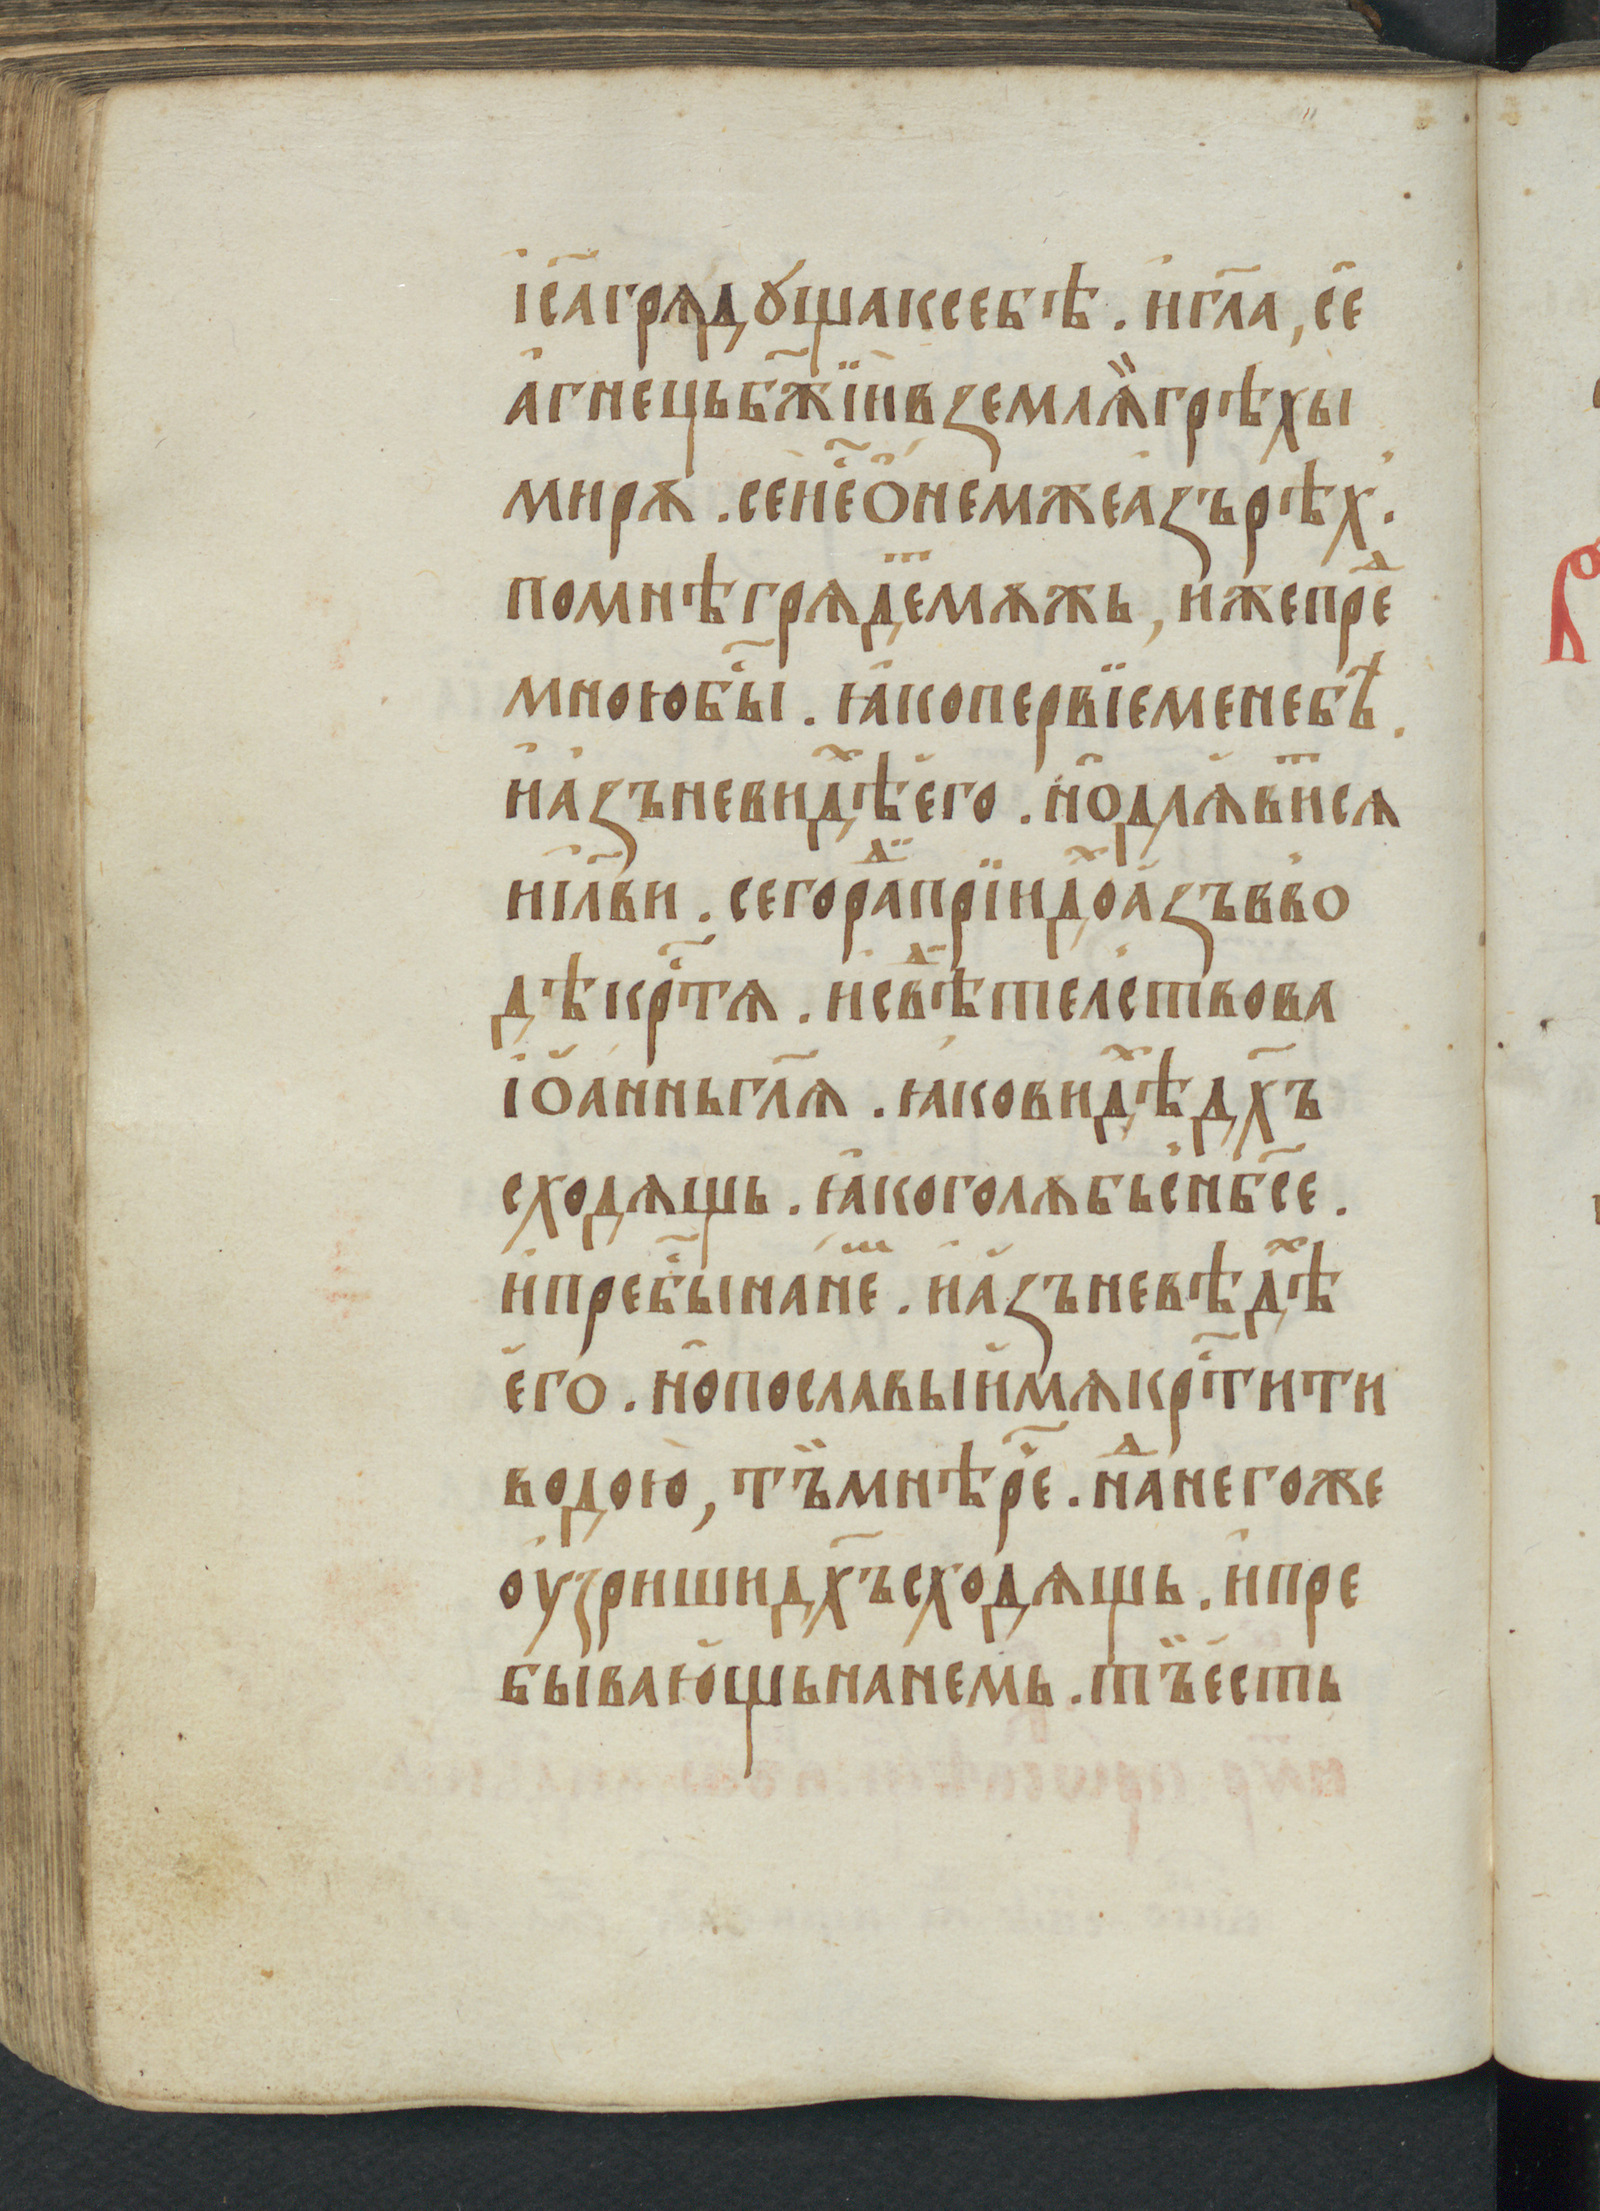 і҆са҃ грѧдꙋща к себѣ . и҆ гл҃а , се҆
а҆гнець бж҃їи в̾землѧ̀и грѣхы
мирѫ . се и҆ е҃ ѡ҆ немже а҆зъ рѣх .
по мнѣ грѧдеⷮ мѫжь , иже преⷣ
мною бы҃ . ꙗ҆ко первїе мене бѣ .
и҆ а҆зъ не видѣⷯ е҆го . н҆о да ꙗ҆виⷮсѧ
і҆и҃лви . сего раⷣ прїидоⷯ а҆зъ в во
дѣ крⷭ҇тѧ . и҆ свѣⷣтельствова
і҆ѡ҆аннь гл҃ѧ . ꙗ҆ко видѣⷯ дх҃ъ
сходѧщь . ꙗ҆ко голѫбь с нб҃се .
и҆ пребы҃ на неⷨ . и҆ а҆зъ не вѣдѣⷯ
е҆го . н҆о пославыи мѧ крⷭ҇тити
водою , тъ̏ мнѣ ре҃ . наⷣ него же
оу҆зриши дх҃ъ сходѧщь . и҆ пре
бывающь на немь . тъ̏ е҆сть